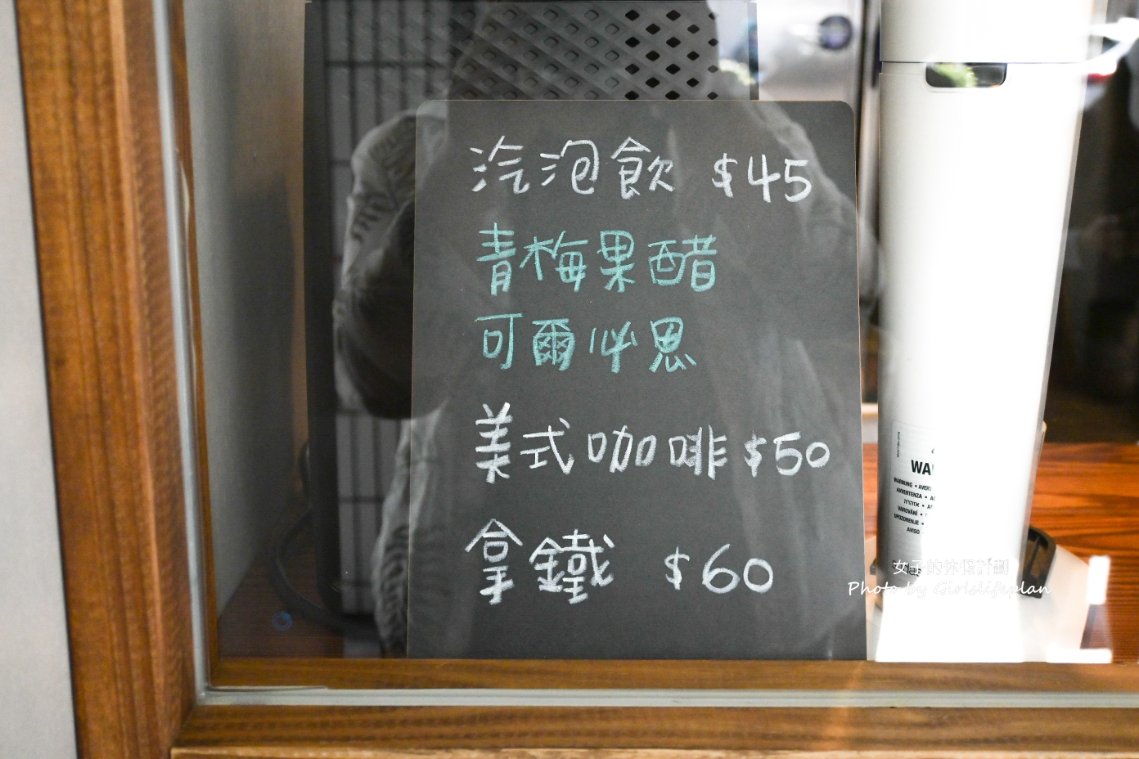 汽泡飲 $45
青梅果醋
可爾必思
美式咖啡 $50
拿鐵 $60
女子的休假計劃
Photo by Girlslifeplan